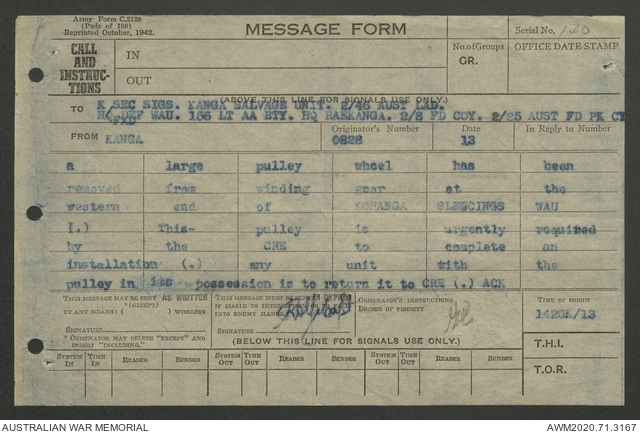 Army Form C.2128
(Pads of 100)
Reprinted October, 1942.
MESSAGE FORM
Serial No. 140
CALL
AND
INSTRUC-
TIONS
IN
OUT
No. of Groups
GR.
OFFICE DATE STAMP
(ABOVE THIS LINE FOR SIGNALS USE ONLY.)
TO K SEC SIGS. KANGA SALVAGE UNIT. 2/46 AUST LAD.
DEF WAU. 156 LT AA BTY. HQ RAEKANGA. 2/8 FD COY. 2/25 AUST FD PK CY
FROM KANGA
Originator's Number
0828
Date
13
In Reply to Number
a large pulley wheel has been
removed from winding gear at the
western end of KORANGA SLUICINGS WAU
(.) This- pulley is urgently required
by the CRE to complete an
installation (.) any unit with the
pulley in its possession is to return it to CRE (.) ACK
THIS MESSAGE MAY BE SENT AS WRITTEN
(EXCEPT)
BY ANY MEANS ( ) WIRELESS
SIGNATURE
THIS MESSAGE MUST BE SENT IN CYPHER
IF LIABLE TO INTERCEPTION OR TO FALL
INTO ENEMY HANDS.
SIGNATURE
ORIGINATOR'S INSTRUCTIONS
DEGREE OF PRIORITY
TIME OF ORIGIN
1420K/13
* ORIGINATOR MAY DELETE "EXCEPT" AND
INSERT "INCLUDING."
(BELOW THIS LINE FOR SIGNALS USE ONLY.)
T.H.I.
SYSTEM IN TIME IN READER SENDER SYSTEM OUT TIME OUT READER SENDER SYSTEM OUT TIME OUT READER SENDER
T.O.R.
AUSTRALIAN WAR MEMORIAL
AWM2020.71.3167